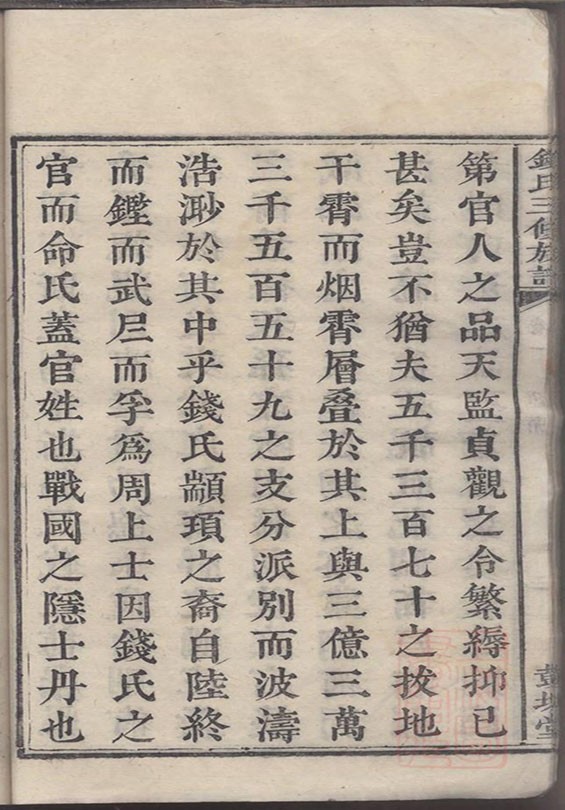 錢氏三修族譜
彭城堂
第官人之品天監貞觀之令繁縟抑已
甚矣豈不猶夫五千三百七十之拔地
干霄而烟霄層疊於其上與三億三萬
三千五百五十九之支分派別而波濤
浩渺於其中乎錢氏顓頊之裔自陸終
而鏗而武𡰥而孚爲周上士因錢氏之
官而命氏蓋官姓也戰國之隱士丹也